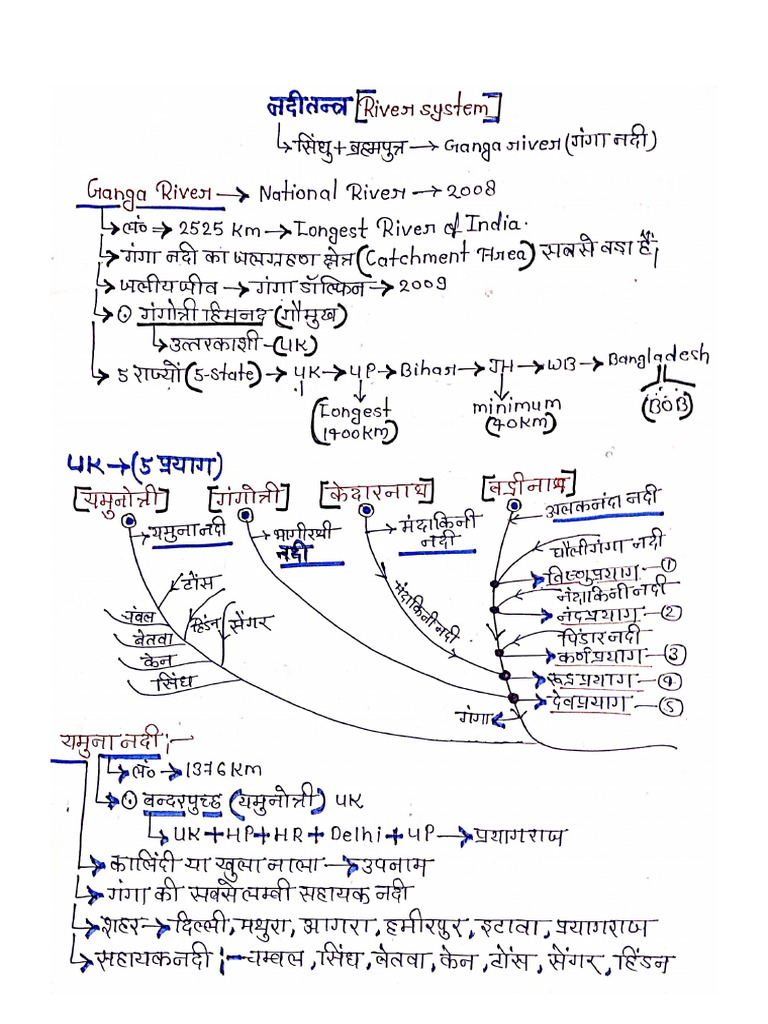 नदीतन्त्र [River system]
↳ सिंधु + ब्रह्मपुत्र → Ganga river (गंगा नदी)
Ganga River → National River → 2008
→ ल० ⇒ 2525 Km → Longest River of India.
→ गंगा नदी का जलग्रहण क्षेत्र (Catchment Area) सबसे बडा है।
→ जलीय जीव → गंगा डॉल्फिन → 2009
→ ⊙ गंगोत्री हिमनद (गौमुख)
→ उत्तरकाशी - (UK)
→ 5 राज्यों (5-State) → UK → UP → Bihar → JH → WB → Bangladesh
Longest
(1400Km)
minimum
(40Km)
(BOB)
UK → (5 प्रयाग)
[यमुनोत्री] [गंगोत्री] [केदारनाथ] [बद्रीनाथ]
यमुना नदी
भागीरथी
नदी
मंदाकिनी
नदी
अलकनंदा नदी
धौलीगंगा नदी
विष्णुप्रयाग - ①
नंदाकिनी नदी
नंदप्रयाग - ②
पिंडार नदी
कर्णप्रयाग - ③
रूद्रप्रयाग - ④
देवप्रयाग - ⑤
मंदाकिनी नदी
गंगा
टोंस
हिंडन
सेंगर
चंबल
बेतवा
केन
सिंध
यमुना नदी;-
→ ल० → 1376 Km
→ ⊙ बन्दरपुच्छ (यमुनोत्री) UK
↳ UK + HP + HR + Delhi + UP → प्रयागराज
→ कालिंदी या खुला नाला → उपनाम
→ गंगा की सबसे लम्बी सहायक नदी
→ शहर → दिल्ली, मथुरा, आगरा, हमीरपुर, इटावा, प्रयागराज
→ सहायक नदी ;- चम्बल, सिंध, बेतवा, केन, टोंस, सेंगर, हिंडन